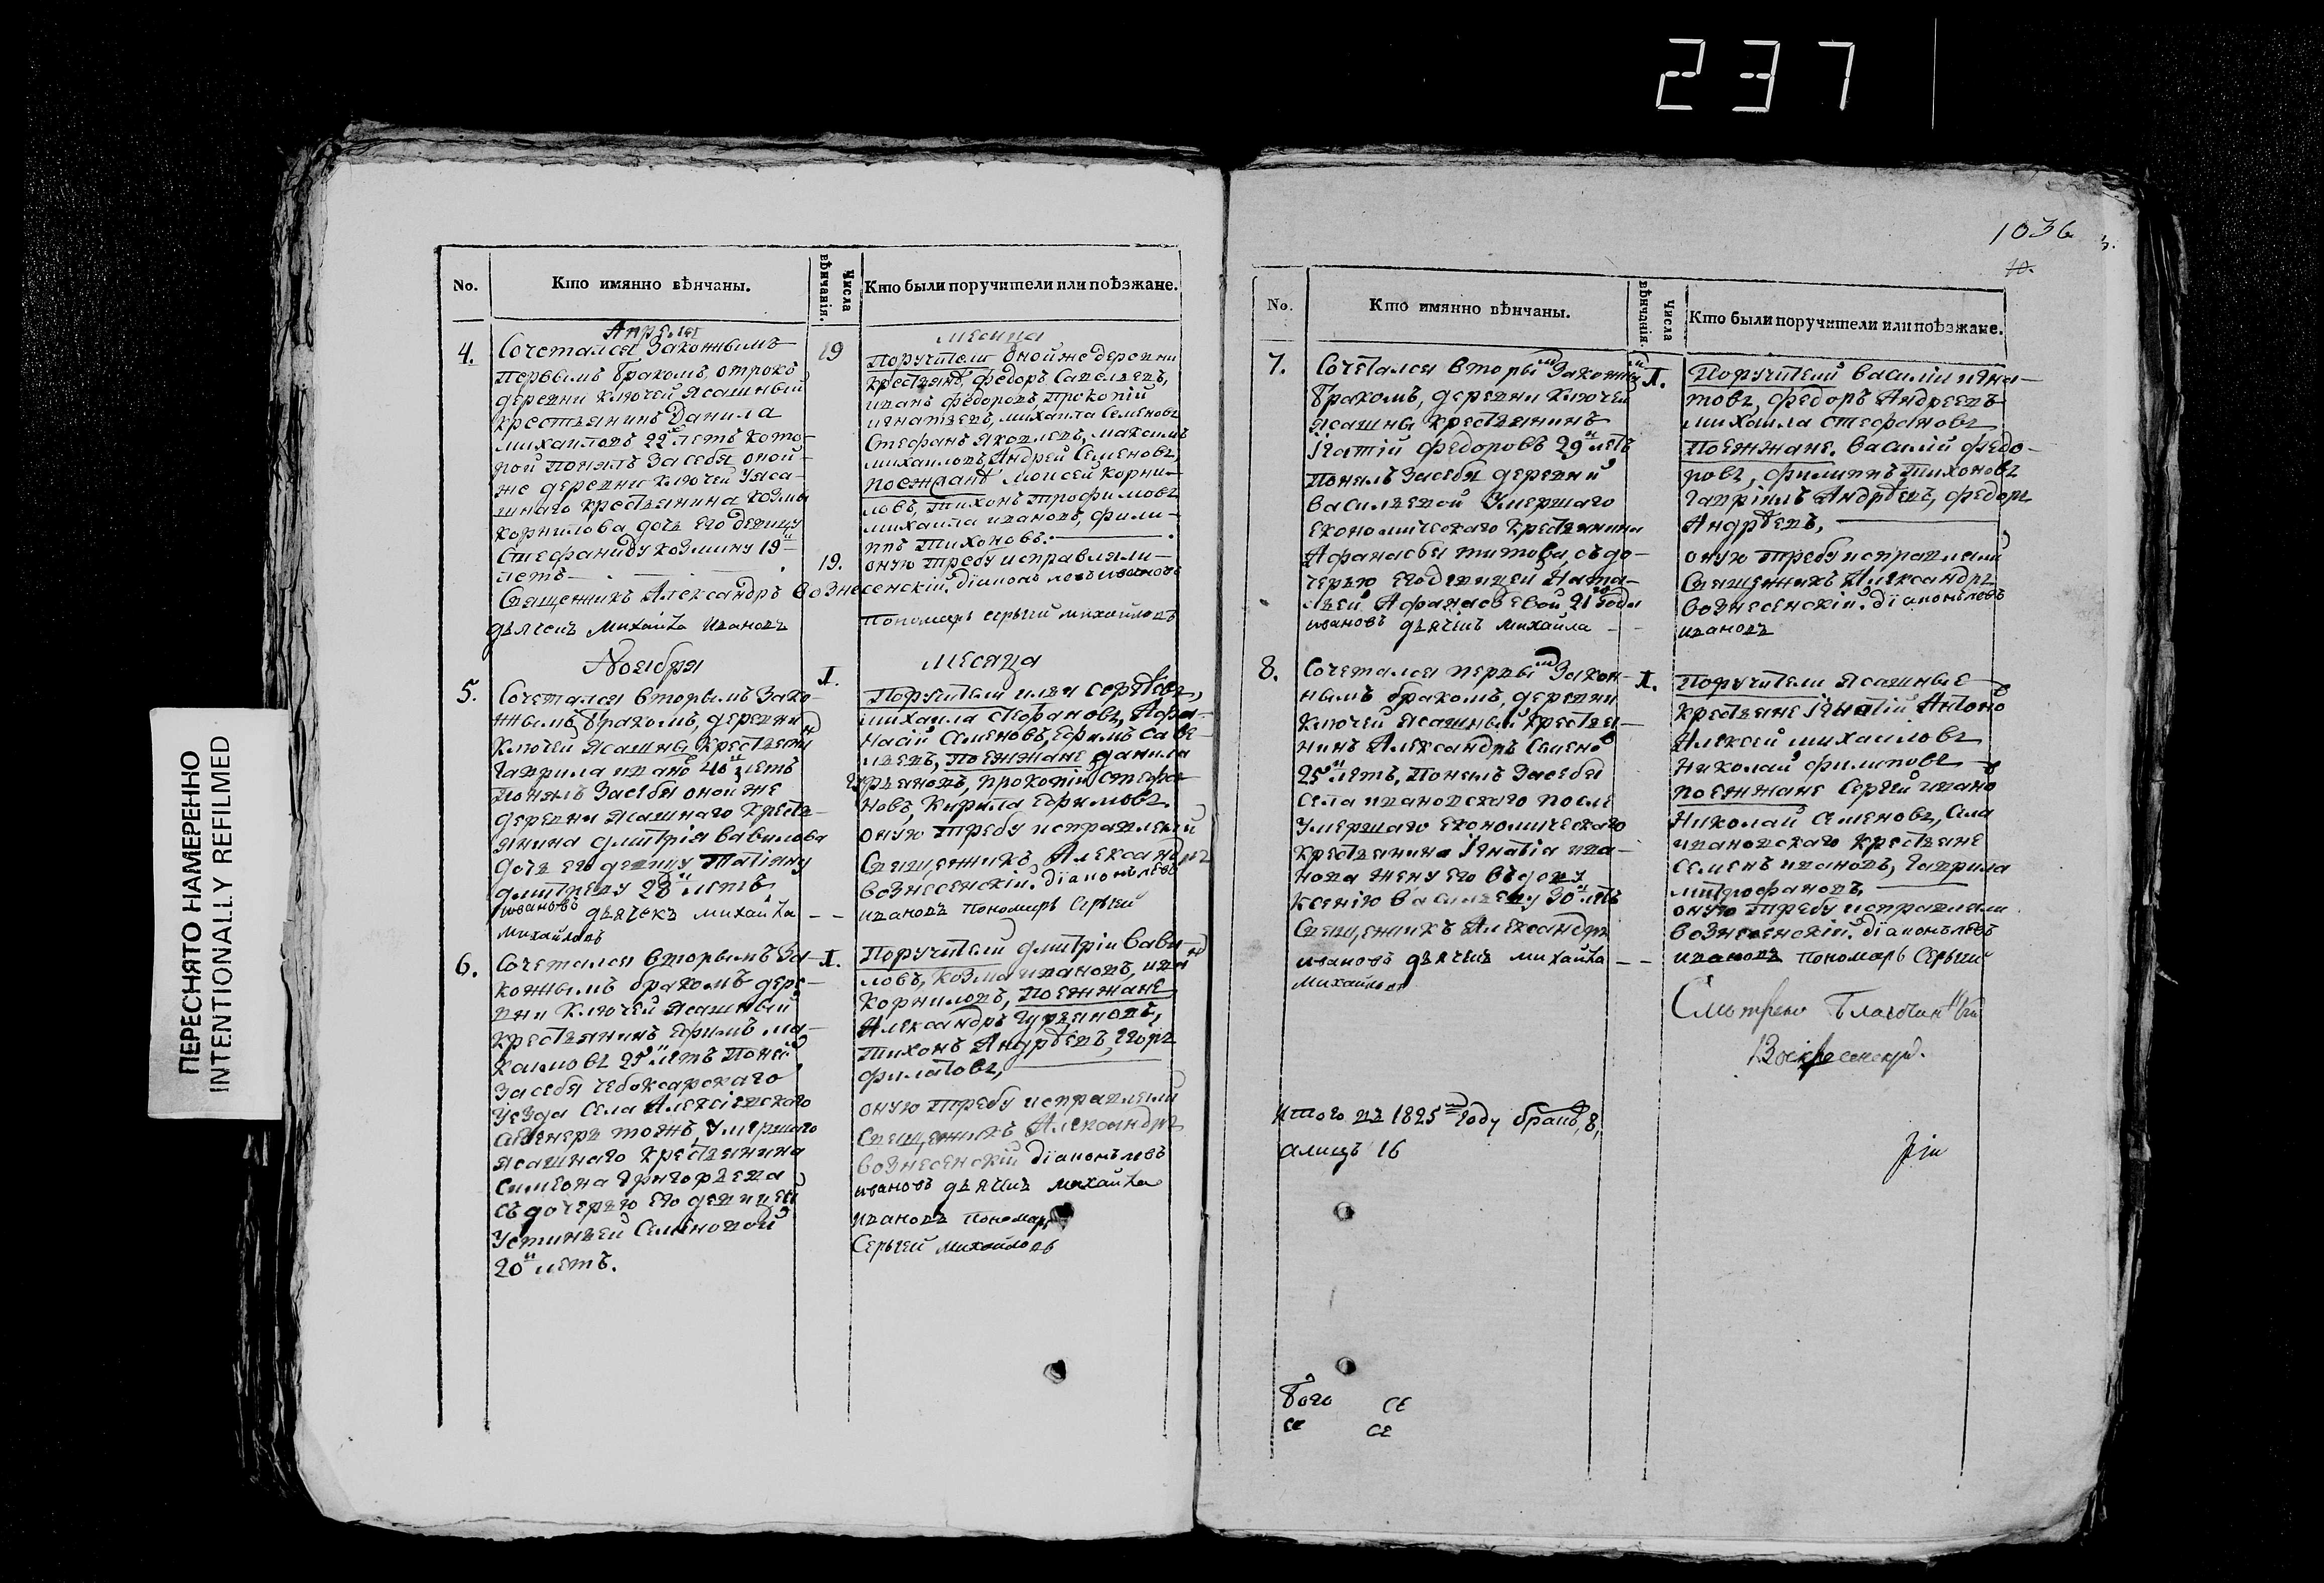 237
ПЕРЕСНЯТО НАМЕРЕННО
INTENTIONALLY REFILMED
No.
Кто имянно вѣнчаны.
Числа вѣнчанія.
Кто были поручители или поѣзжане.
Апреля
месяца
4.
Сочетался Законнымъ
первымъ бракомъ, отрокъ
деревни Ключей Ясашный
крестьянинъ Данила
михаиловъ 22 летъ кото-
рой понялъ За себя оной-
же деревни Ключей Уяса-
шнаго крестьянина козмы
корнилова дочь Его девицу
Стефаниду козмину 19
летъ
19
Поручители оной же деревни
крестьянъ, федоръ Савельевъ,
иванъ федоровъ Прокопій
игнатьевъ, михаила Семеновъ
Стефанъ Яковлевъ, максимъ
михаиловъ Андрей Семеновъ,
поезжанѣ Моисей Корни-
ловъ, Тихонъ Трофимовъ
михаила ивановъ, фили-
ппъ Тихоновъ.
19.
оную требу исправляли
Священникъ Александръ Вознесенскій. діаконъ левъ ивановъ
дьячекъ Михайла Ивановъ
Пономарь Сергѣй михайловъ
Ноября
месяца
5.
Сочетался вторымъ Зако-
ннымъ бракомъ, деревни
Ключей Ясашны крестьяни
Гаврила ивано 40 летъ
понялъ Засебя оной же
деревни Ясашнаго крестья-
янина дмитрія вавилова
дочь его девицу Татіяну
дмитреву 28 летъ
ивановъ дьячекъ михайла
михайловъ
1.
михаила Стефановъ, Афа-
насій Семеновъ, Ефимъ Саве-
льевъ, поезжане данила
Гурьяновъ, прокопій Стефа-
новъ, Кирила Ефимовъ.
оную требу исправляли
Священникъ Александръ
вознесенскій. діаконъ левъ
ивановъ пономарь Сергѣй
6.
Сочетался вторымъ За-
коннымъ бракомъ дере-
вни Ключей Ясашный
крестьянинъ Ефимъ ма-
Засебя чебоксарскаго
уезда Села Алексѣевскаго
умершаго
ясашнаго крестьянина
Симеона Григорьева
съ дочерью его девицей
Устиньей Семеновой
20 летъ.
1.
Поручители дмитріи вави-
ловъ, козма ивановъ, иван
Корниловъ, поезжане
Александръ Гурьяновъ,
Тихонъ Андрѣевъ, Егоръ
филатовъ,
оную требу исправляли
Священникъ Александръ
вознесенскій діаконъ левъ
ивановъ дьячекъ михайла
ивановъ пономарь
Сергѣй михайловъ
1036
10.
No.
Кто имянно вѣнчаны.
Числа вѣнчанія.
Кто были поручители или поѣзжане.
7.
Сочетался вторымъ Законны
бракомъ, деревни Ключей
Ясашны крестьянинъ
Ігнатій Федоровъ 29 летъ
понялъ Засебя деревни
васильевой Умершаго
Економическаго крестьянина
Афанасья титова, съ до-
черью Его девицей Ната-
льей Афанасьевой 21 года
ивановъ дьячекъ михайла
1.
Поручители василій игна-
товъ, федоръ Андреевъ
михаила стефановъ
поезжане. василій федо-
ровъ, филиппъ тихоновъ
Гаврилъ Андрѣевъ, федоръ
Андрѣевъ,
оную требу исправляли
Священникъ Александръ
вознесенскій. діаконъ левъ
ивановъ
8.
Сочетался первымъ Закон-
нымъ бракомъ, деревни
Ключей Ясашный крестья-
нинъ Александръ Семено
25 летъ, понялъ Засебя
села ивановскаго после
умершаго економическаго
крестьянина Ігнатія ива-
нова жену его вьдову
Ксенію васильеву 30 летъ
Священникъ Александръ
ивановъ дьячекъ михайла
михайловъ
1.
Поручители Ясашные
крестьяне Ігнатій Антоно
Алексей михаиловъ
Николай филиповъ
поезжане Сергѣй ивано
Николай Семеновъ, Села
ивановскаго крестьяне
Семенъ ивановъ, Гаврила
митрофановъ,
оную требу исправляли
вознесенскій. діаконъ левъ
ивановъ пономарь Сергѣй
Смотрено Благочинный
Воскресенскій.
Итого въ 1825 году браковъ, 8,
алицъ 16